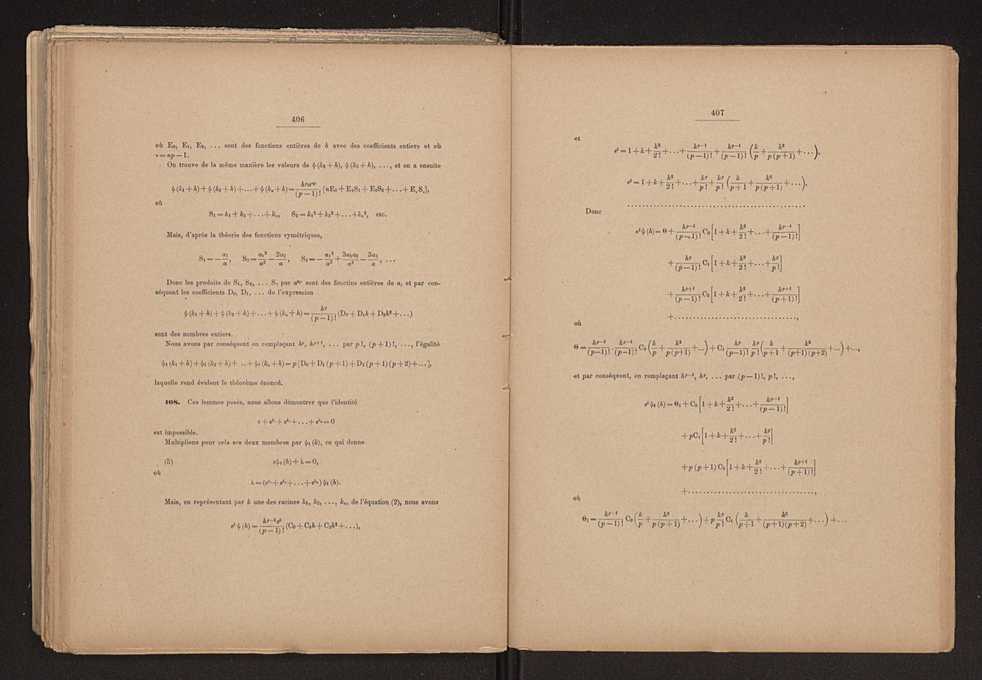 406
où E₀, E₁, E₂, ... sont des fonctions entières de k avec des coefficients entiers et où
ν = np — 1.
On trouve de la même manière les valeurs de ψ(k₂ + h), ψ(k₃ + h), ..., et on a ensuite
ψ(k₁ + h) + ψ(k₂ + h) + ... + ψ(kₙ + h) = hᵖaⁿᵖ/(p — 1)! [nE₀ + E₁S₁ + E₂S₂ + ... + EᵥSᵥ],
où
S₁ = k₁ + k₂ + ... + kₙ, S₂ = k₁² + k₂² + ... + kₙ², etc.
Mais, d'après la théorie des fonctions symétriques,
S₁ = — a₁/a, S₂ = a₁²/a² — 2a₂/a, S₃ = — a₁³/a³ + 3a₁a₂/a² — 3a₃/a, ...
Donc les produits de S₁, S₂, ... Sᵥ par aⁿᵖ sont des functins entières de a, et par con-
séquent les coefficients D₀, D₁, ... de l'expression
ψ(k₁ + h) + ψ(k₂ + h) + ... + ψ(kₙ + h) = hᵖ/(p — 1)! (D₀ + D₁h + D₂h² + ...)
sont des nombres entiers.
Nous avons par conséquent en remplaçant hᵖ, hᵖ⁺¹, ... par p!, (p + 1)!, ..., l'égalité
ψ₁(k₁ + h) + ψ₁(k₂ + h) + ... + ψ₁(kₙ + h) = p [D₀ + D₁(p + 1) + D₂(p + 1)(p + 2) + ...],
laquelle rend évident le théorème énoncé.
408. Ces lemmes posés, nous allons démontrer que l'identité
est impossible.
Multiplions pour cela ses deux membres par ψ₁(h), ce qui donne
(5)
où
Mais, en représentant par k une des racines k₁, k₂, ..., kₙ, de l'équation (2), nous avons
eᵏψ(h) = hᵖ⁻¹eᵏ/(p — 1)! (C₀ + C₁h + C₂h² + ...),
407
et
eᵏ = 1 + k + k²/2! + ... + kᵖ⁻¹/(p—1)! + kᵖ⁻¹/(p—1)! (k/p + k²/p(p+1) + ...),
Donc
eᵏψ(h) = Θ + hᵖ⁻¹/(p—1)! C₀ [1 + k + k²/2! + ... + kᵖ⁻¹/(p—1)!]
+ hᵖ/(p—1)! C₁ [1 + k + k²/2! + ... + kᵖ/p!]
+ hᵖ⁺¹/(p—1)! C₂ [1 + k + k²/2! + ... + kᵖ⁺¹/(p+1)!]
+ ..............................,
où
et par conséquent, en remplaçant hᵖ⁻¹, hᵖ, ... par (p — 1)!, p!, ...,
eᵏψ₁(h) = Θ₁ + C₀ [1 + k + k²/2! + ... + kᵖ⁻¹/(p—1)!]
+ pC₁ [1 + k + k²/2! + ... + kᵖ/p!]
+ p(p+1) C₂ [1 + k + k²/2! + ... + kᵖ⁺¹/(p+1)!]
+ ..............................,
où
Θ₁ = kᵖ⁻¹/(p—1)! C₀ (k/p + k²/p(p+1) + ...) + p kᵖ/p! C₁ (k/p+1 + k²/(p+1)(p+2) + ...) + ...